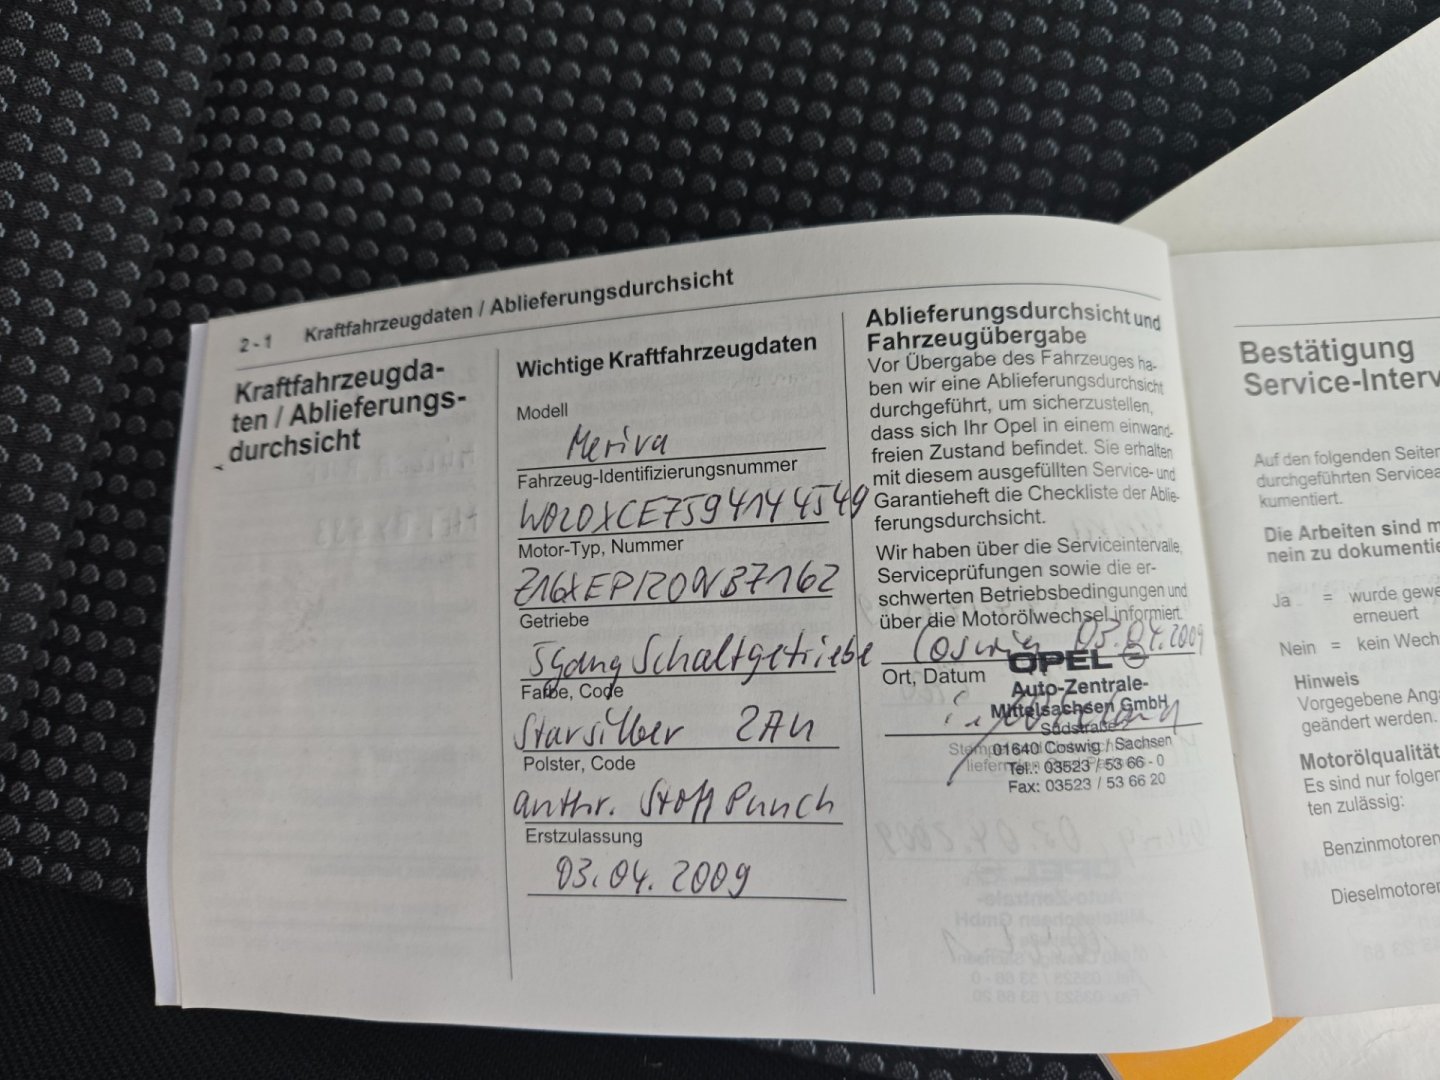 2 - 1 Kraftfahrzeugdaten / Ablieferungsdurchsicht
Kraftfahrzeugda-
ten / Ablieferungs-
durchsicht
Wichtige Kraftfahrzeugdaten
Modell
Meriva
Fahrzeug-Identifizierungsnummer
W0L0XCE7594144549
Motor-Typ, Nummer
Z16XEP/20NB7162
Getriebe
5gang Schaltgetriebe
Farbe, Code
Starsilber 2AU
Polster, Code
anthr. Stoff Punch
Erstzulassung
03.04.2009
Ablieferungsdurchsicht und
Fahrzeugübergabe
Vor Übergabe des Fahrzeuges ha-
ben wir eine Ablieferungsdurchsicht
durchgeführt, um sicherzustellen,
dass sich Ihr Opel in einem einwand-
freien Zustand befindet. Sie erhalten
mit diesem ausgefüllten Service- und
Garantieheft die Checkliste der Ablie-
ferungsdurchsicht.
Wir haben über die Serviceintervalle,
Serviceprüfungen sowie die er-
schwerten Betriebsbedingungen und
über die Motorölwechsel informiert.
Coswig 03.04.2009
Ort, Datum
OPEL
Auto-Zentrale-
Mittelsachsen GmbH
Südstraße
01640 Coswig / Sachsen
Tel.: 03523 / 53 66 - 0
Fax: 03523 / 53 66 20
Bestätigung
Service-Interv
Auf den folgenden Seiten
durchgeführten Servicea
kumentiert.
Die Arbeiten sind m
nein zu dokumentie
Ja = wurde gewe
erneuert
Nein = kein Wech
Hinweis
Vorgegebene Anga
geändert werden.
Motorölqualität
Es sind nur folgen
ten zulässig:
Benzinmotoren
Dieselmotoren